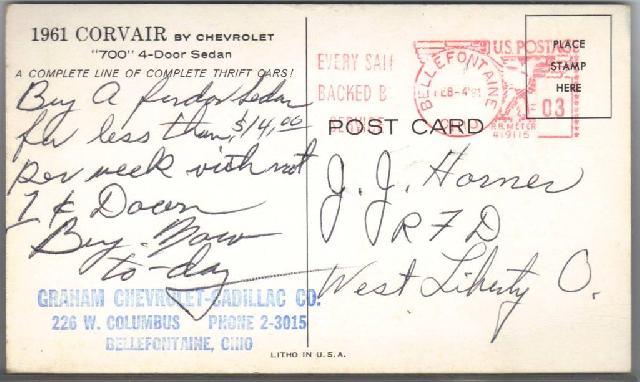 1961 CORVAIR BY CHEVROLET
"700" 4-Door Sedan
A COMPLETE LINE OF COMPLETE THRIFT CARS!
Buy A fordor sedan
for less than $14.00
per week with not
1 ¢ Down
Buy. Now
to-day
GRAHAM CHEVROLET-CADILLAC CO.
226 W. COLUMBUS PHONE 2-3015
BELLEFONTAINE, OHIO
EVERY SALE
BACKED B
SERVICE
BELLEFONTAINE
FEB-4'61
OHIO
U.S. POSTAGE
03
P.B. METER
419115
PLACE
STAMP
HERE
POST CARD
J. J. Horner
R F D
West Liberty O.
LITHO IN U.S.A.